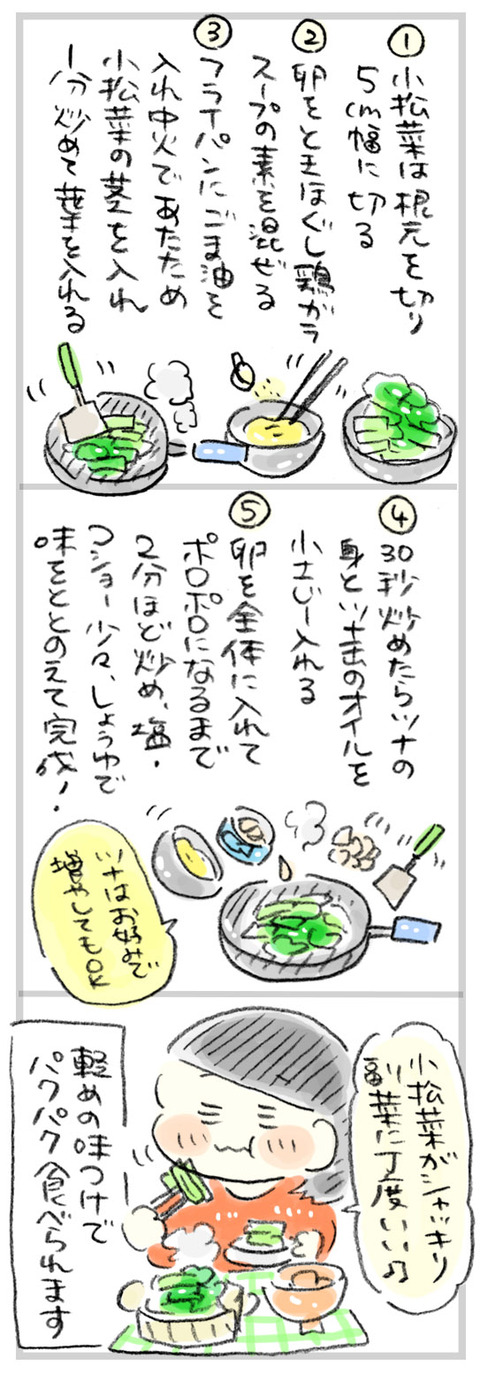 ①
小松菜は根元を切り
5cm幅に切る
②
卵をときほぐし鶏がら
スープの素を混ぜる
③
フライパンにごま油を
入れ中火であたため
小松菜の茎を入れ
1分炒めて葉を入れる
④
30秒炒めたらツナの
身とツナ缶のオイルを
小さじ1入れる
⑤
卵を全体に入れて
ポロポロになるまで
2分ほど炒め、塩・
コショー少々、しょうゆで
味をととのえて完成!
ツナはお好みで
増やしてもOK
小松菜がシャッキリ
副菜に丁度いい♫
軽めの味つけで
パクパク食べられます